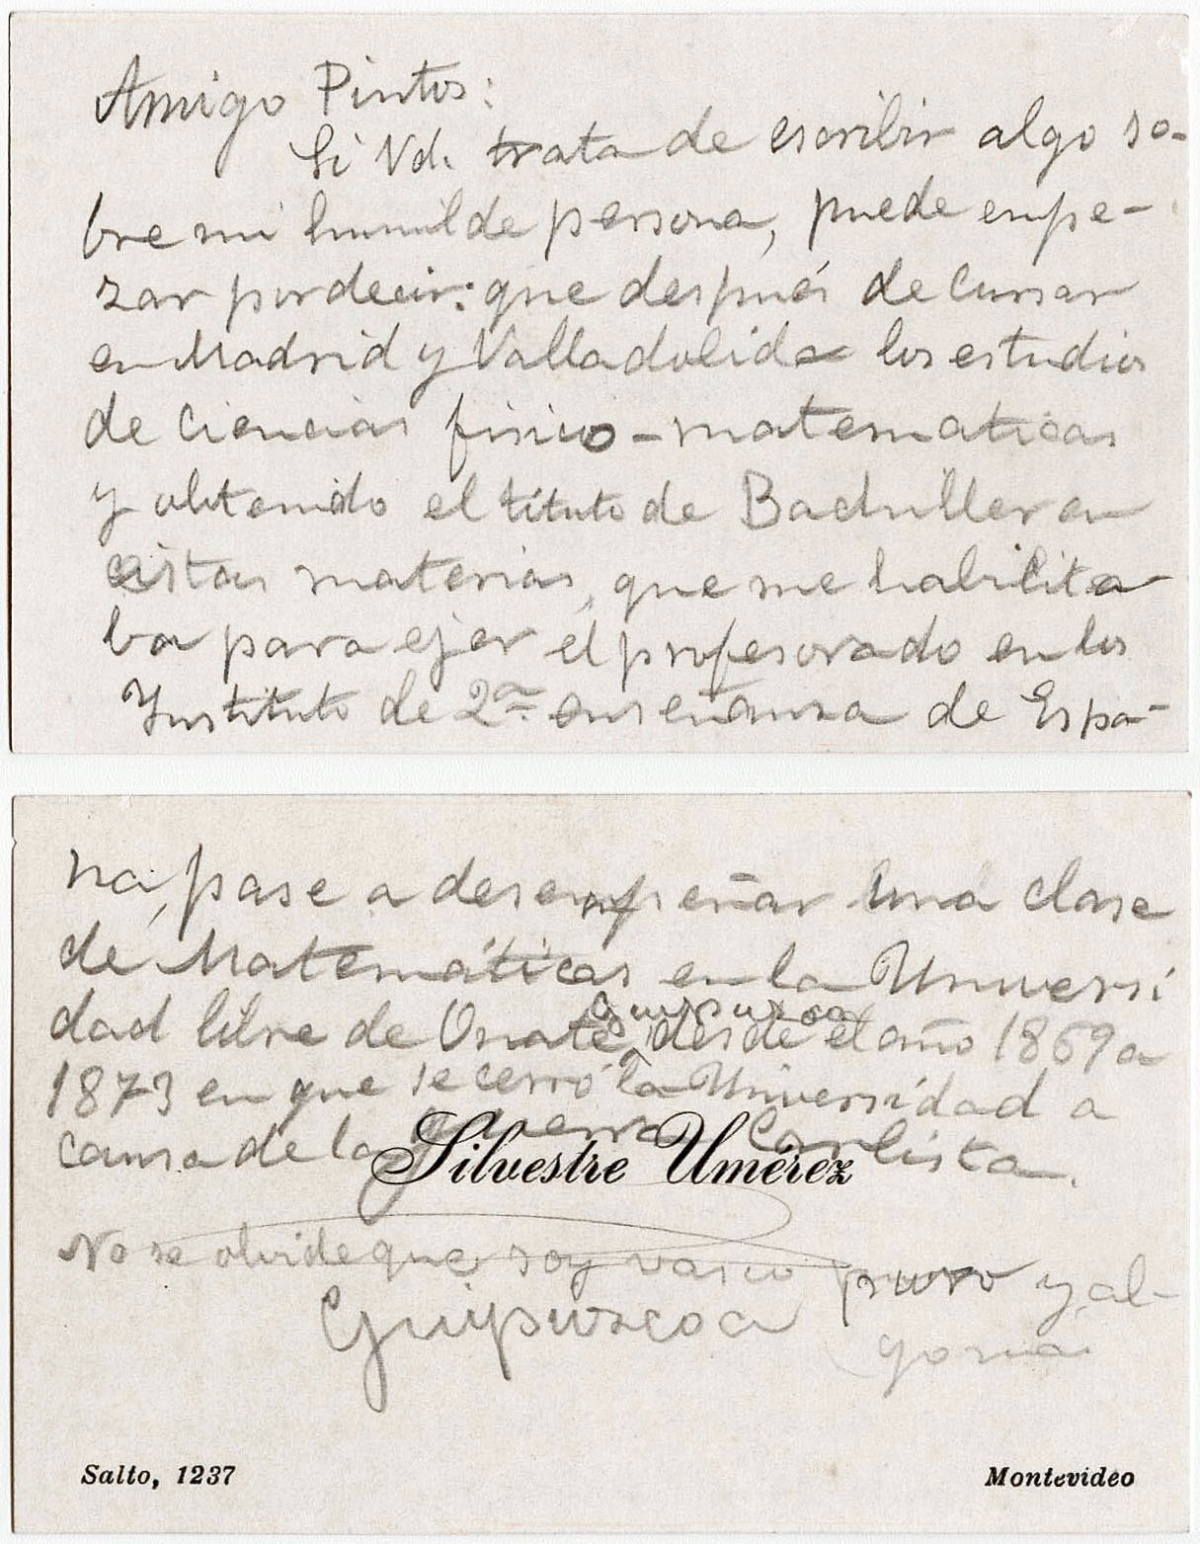 Amigo Pintos:
Si Vd. trata de escribir algo so-
bre mi humilde persona, puede empe-
zar por decir: que después de cursar
en Madrid y Valladolid los estudios
de ciencias fisico-matematicas
y obtenido el titulo de Bachiller en
estas materias, que me habilita-
ba para ejer el profesorado en los
Instituto de 2ª enseñanza de Espa-
ña, pase a desempeñar una clase
de Matemáticas en la Universi
dad libre de Onate, desde el año 1869 a
Guipuzcoa
1873 en que se cerró la Universidad a
causa de la guerra Carlista.
Silvestre Umérez
No se olvide que soy vasco puro y al-
Guipuzcoa
go mas
Salto, 1237
Montevideo